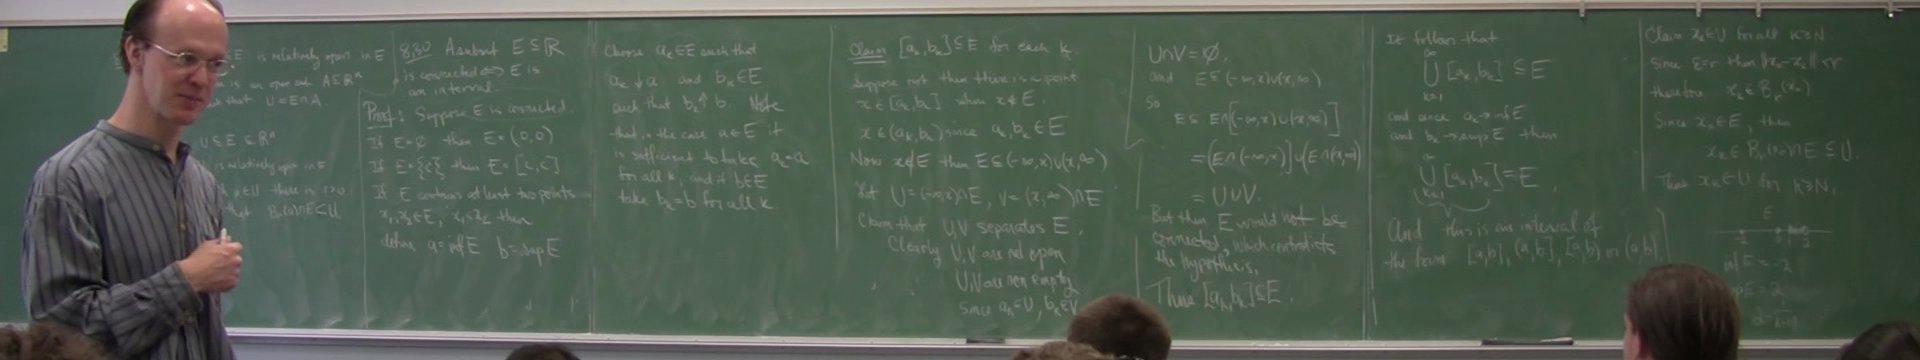 E is relatively open in E
is an open set A⊆ℝⁿ
such that U=E∩A
U⊆E⊆ℝⁿ
is relatively open in E
∈U there is r>0
that Bᵣ(a)∩E⊆U
8.30 A subset E⊆ℝ
is connected ⇔ E is
an interval.
Proof: Suppose E is connected.
If E=∅ then E=(0,0)
If E={c} then E=[c,c]
If E contains at least two points
x₁,x₂∈E, x₁<x₂ then
define a=inf E b=sup E
Choose aₖ∈E such that
aₖ↓a and bₖ∈E
such that bₖ↑b. Note
that in the case a∈E it
is sufficient to take aₖ=a
for all k, and if b∈E
take bₖ=b for all k
Claim [aₖ,bₖ]⊆E for each k.
Suppose not then there is a point
x∈[aₖ,bₖ] where x∉E.
x∈(aₖ,bₖ) since aₖ,bₖ∈E
Now x∉E then E⊆(-∞,x)∪(x,∞)
Let U=(-∞,x)∩E, V=(x,∞)∩E
Claim that U,V separates E.
Clearly U,V are rel open
U,V are non empty
since aₖ∈U, bₖ∈V
U∩V=∅.
and E⊆(-∞,x)∪(x,∞)
so
E⊆E∩[(-∞,x)∪(x,∞)]
=(E∩(-∞,x))∪(E∩(x,∞))
=U∪V.
But then E would not be
connected, which contradicts
the hypothesis,
Thus [aₖ,bₖ]⊆E.
It follows that
∞
∪ [aₖ,bₖ]⊆E
k=1
and since aₖ→inf E
and bₖ→sup E then
∞
∪ [aₖ,bₖ]=E
k=1
And this is an interval of
the form [a,b], (a,b], [a,b) or (a,b)
Claim xₖ∈U for all k≥N.
Since ε=r then ‖xₖ-x₀‖<r
therefore xₖ∈Bᵣ(x₀)
Since xₖ∈E, then
xₖ∈Bᵣ(x₀)∩E⊆U.
Thus xₖ∈U for k≥N.
E
inf E=-2
sup E=2